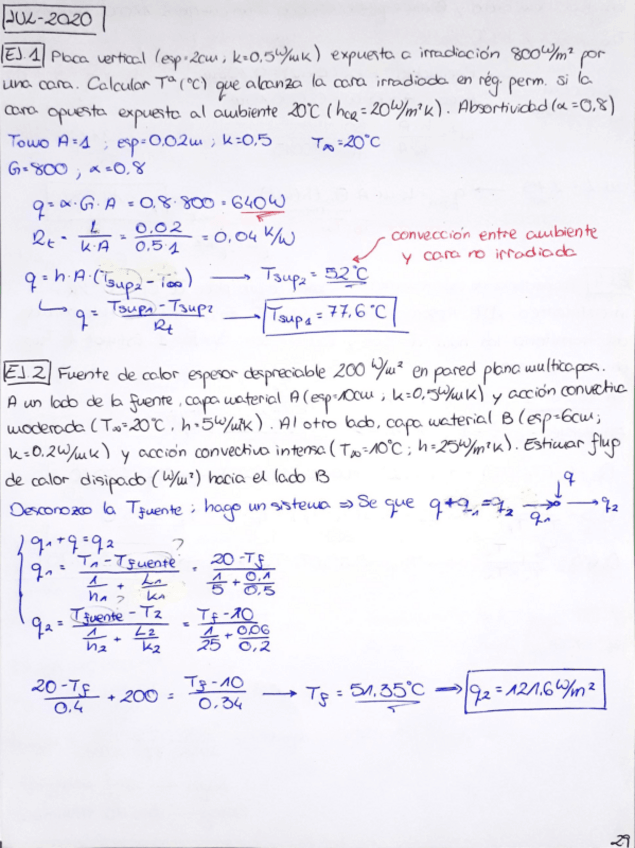 JUL-2020
EJ.1 Placa vertical (esp=2cm; k=0,5W/mK) expuesta a irradiación 800W/m² por
una cara. Calcular Tª (ºC) que alcanza la cara irradiada en rég. perm. si la
cara opuesta expuesta al ambiente 20ºC (hcR=20W/m²K). Absortividad (α=0,8)
Tomo A=1 ; esp=0.02m ; k=0,5 T∞=20ºC
G=800 ; α=0,8
q=α·G·A = 0,8·800=640W
Rt = L/(k·A) = 0,02/(0,5·1) = 0,04 K/W
convección entre ambiente
y cara no irradiada
q=h·A·(Tsup2 - T∞) → Tsup2 = 52ºC
↳ q = (Tsup1 - Tsup2)/Rt → Tsup1 = 77,6ºC
EJ.2 Fuente de calor espesor despreciable 200 W/m² en pared plana multicapas.
A un lado de la fuente, capa material A (esp=10cm ; k=0,5W/mK) y acción convectiva
moderada (T∞=20ºC, h=5W/m²K). Al otro lado, capa material B (esp=6cm;
k=0.2W/mK) y acción convectiva intensa (T∞=10ºC ; h=25W/m²K). Estimar flujo
de calor disipado (W/m²) hacia el lado B
Desconozco la Tfuente ; hago un sistema ⇒ Se que q+q1=q2 q q1 q2
q1+q=q2 ?
q1 = (T1 - Tfuente)/(1/h1 + L1/k1) = (20-Tf)/(1/5 + 0.1/0.5)
?
q2 = (Tfuente - T2)/(1/h2 + L2/k2) = (Tf-10)/(1/25 + 0.06/0,2)
(20-Tf)/0.4 + 200 = (Tf-10)/0.34 → Tf = 51,35ºC ⇒ q2 = 121,6W/m²
29